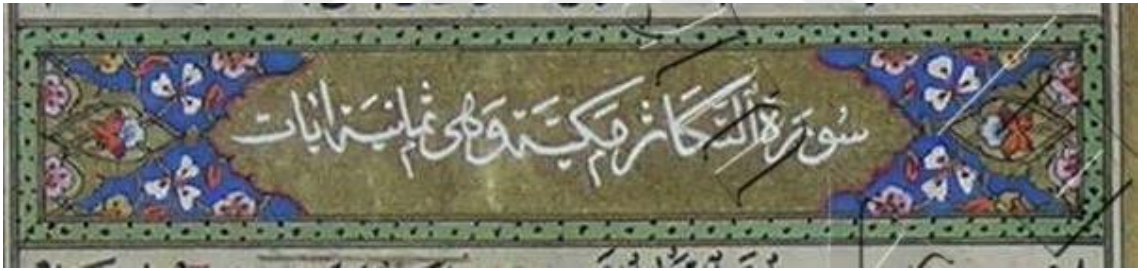 سُورَةُ ٱلتَّكَاثُر مَكِيَّة وَهِىَ ثَمَانِيَة اٰيَات